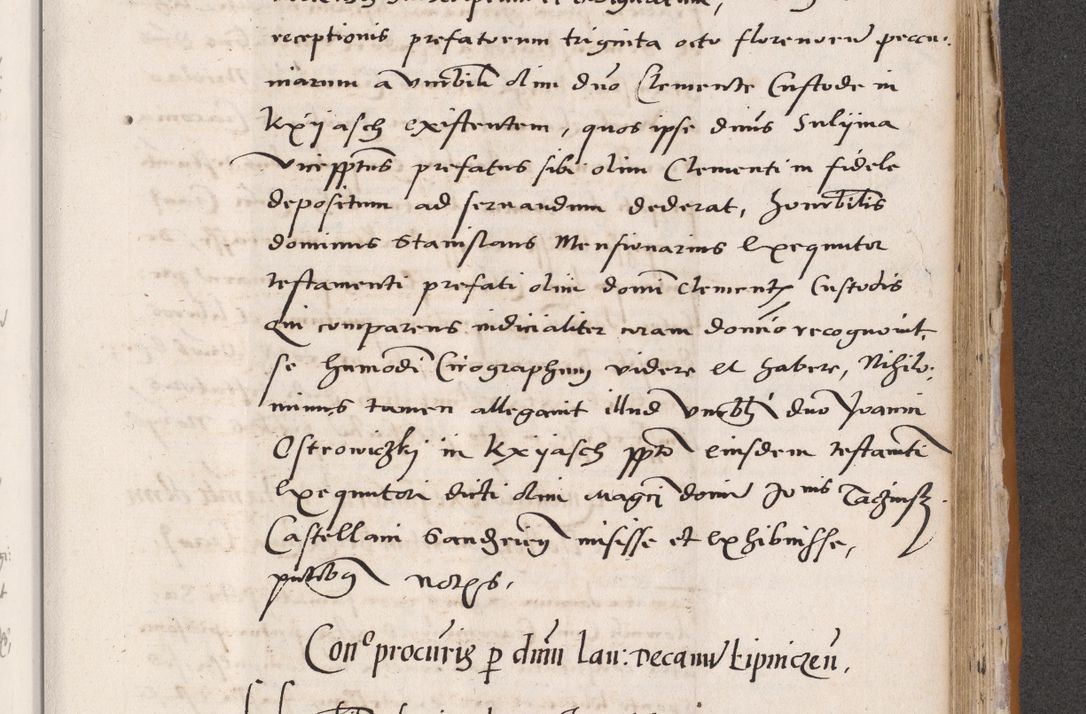 receptionis prefatorum triginta octo florenorũ peccu:
niarum a vnerbili olim dño Clemente Custode in
Kxyӱasch existentem, quos ipse dnus Sulyma
viceppt̃us prefatus sibi olim Clementi in fidele
depositum ad seruandum dederat, honerbilis
dominus Stanislaus Mensionarius Exequutor
testamenti prefati olim domĩ Clementẹ Custodis
Qui comparens iudicialiter coram domĩo recognouit,
se hmodĩ Cirographum videre et habere, Nihilo:
minus tamen allegauit illud vnerbli dño Joanni
Ostrowiczki in Kxyasch ppt̃o eiusdem testamẽti
Exequutori dicti olim Magci domĩ Jo nis Taczinsk
Castellani Sandzeien misisse et exhibuisse,
pñtibus notẹs,
Con° procuris ꝑ dnũm Lau: Decanũ Lipniczeñ,